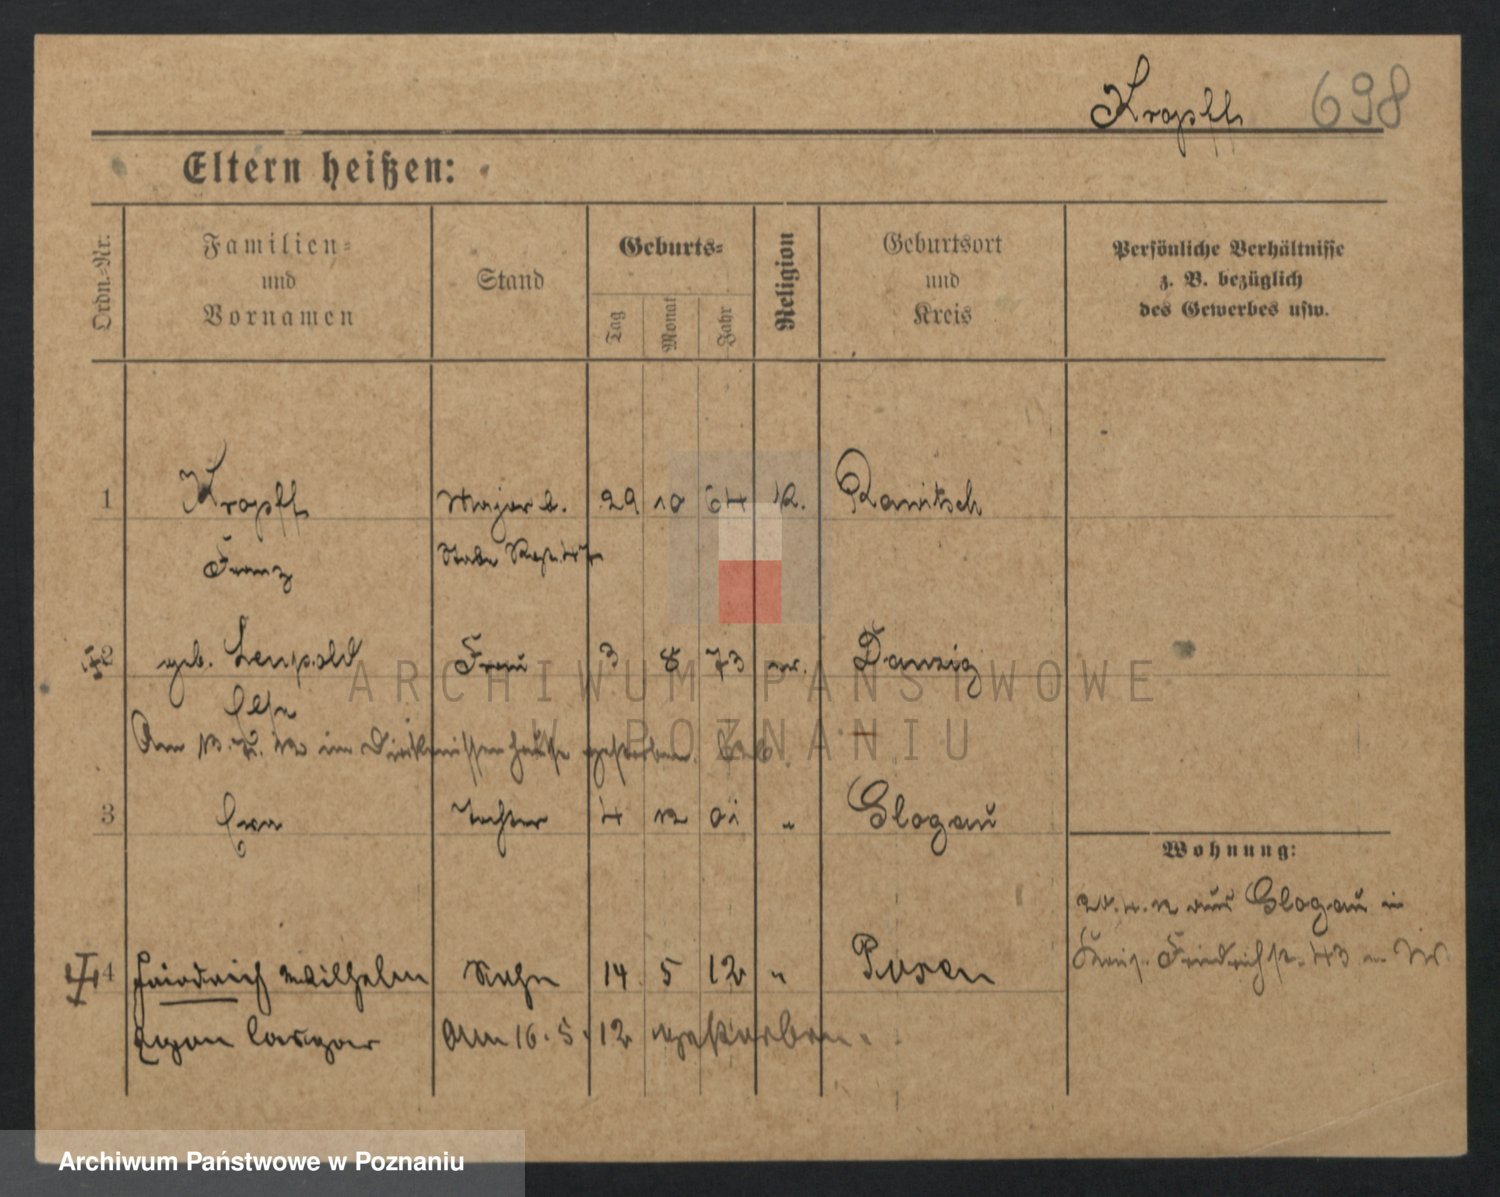 Kropff 698
Eltern heißen:
Ordn.-Nr.
Familien-
und
Vornamen
Stand
Geburts-
Tag
Monat
Jahr
Religion
Geburtsort
und
Kreis
Persönliche Verhältnisse
z. B. bezüglich
des Gewerbes usw.
1 Kropff Major b. 29 10 64 K. Rawitsch
Franz Stabe
2 geb. Leupold Frau 3 8 73 ev. Danzig
Elsa
Am 13. 7. 12 im Diakonissenhause gestorben.
3 Eva Tochter 4 12 01 " Glogau
Wohnung:
20. 4. 12 aus Glogau in
Friedrichstr. 43
4 Friedrich Wilhelm Sohn 14 5 12 " Posen
Egon Am 16. 5. 12 gestorben.
ARCHIWUM PAŃSTWOWE
W POZNANIU
Archiwum Państwowe w Poznaniu